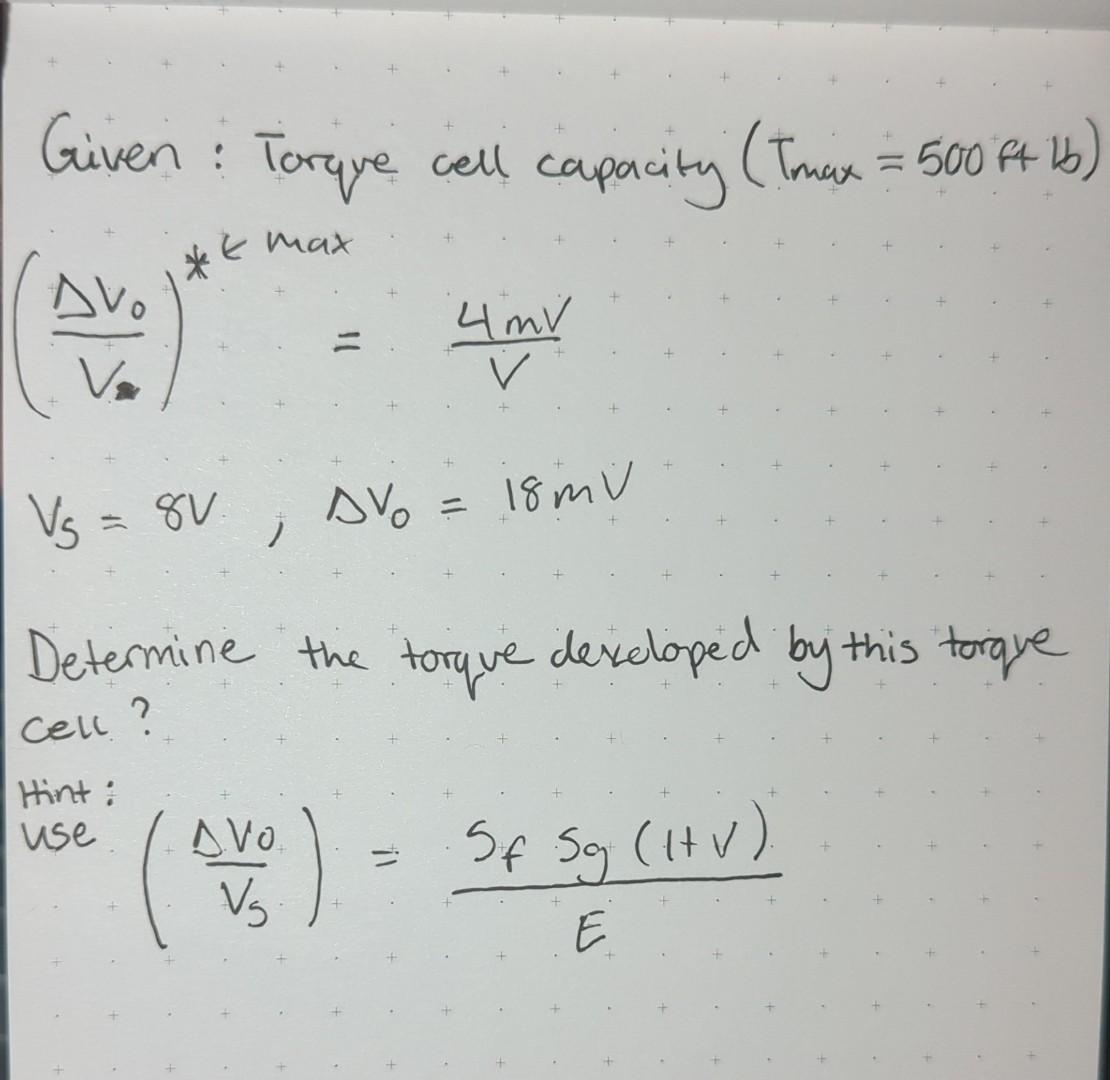 Given : Torque cell capacity (Tmax = 500 ft lb)
(ΔVo / V)* ← max = 4mV / V
Vs = 8V , ΔVo = 18mV
Determine the torque developed by this torque
cell ?
Hint :
use (ΔVo / Vs) = Sf Sg (1+V) / E